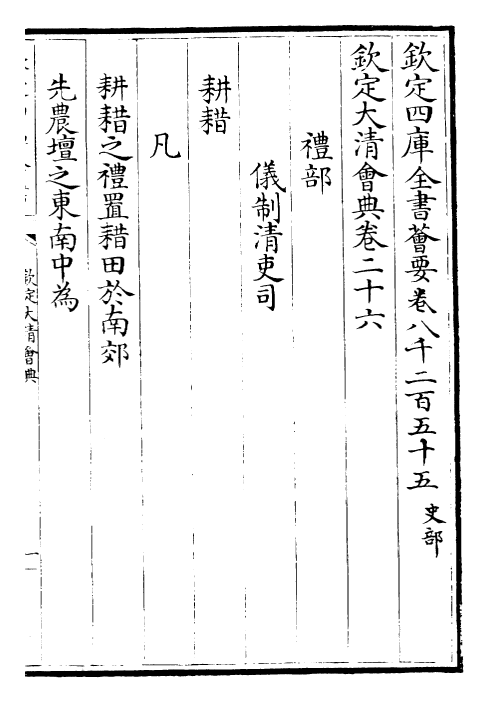 欽定四庫全書薈要卷八千二百五十五 史部
欽定大清會典卷二十六
禮部
儀制清吏司
耕耤
凡
耕耤之禮置耤田於南郊
先農壇之東南中為
欽定大清會典
一